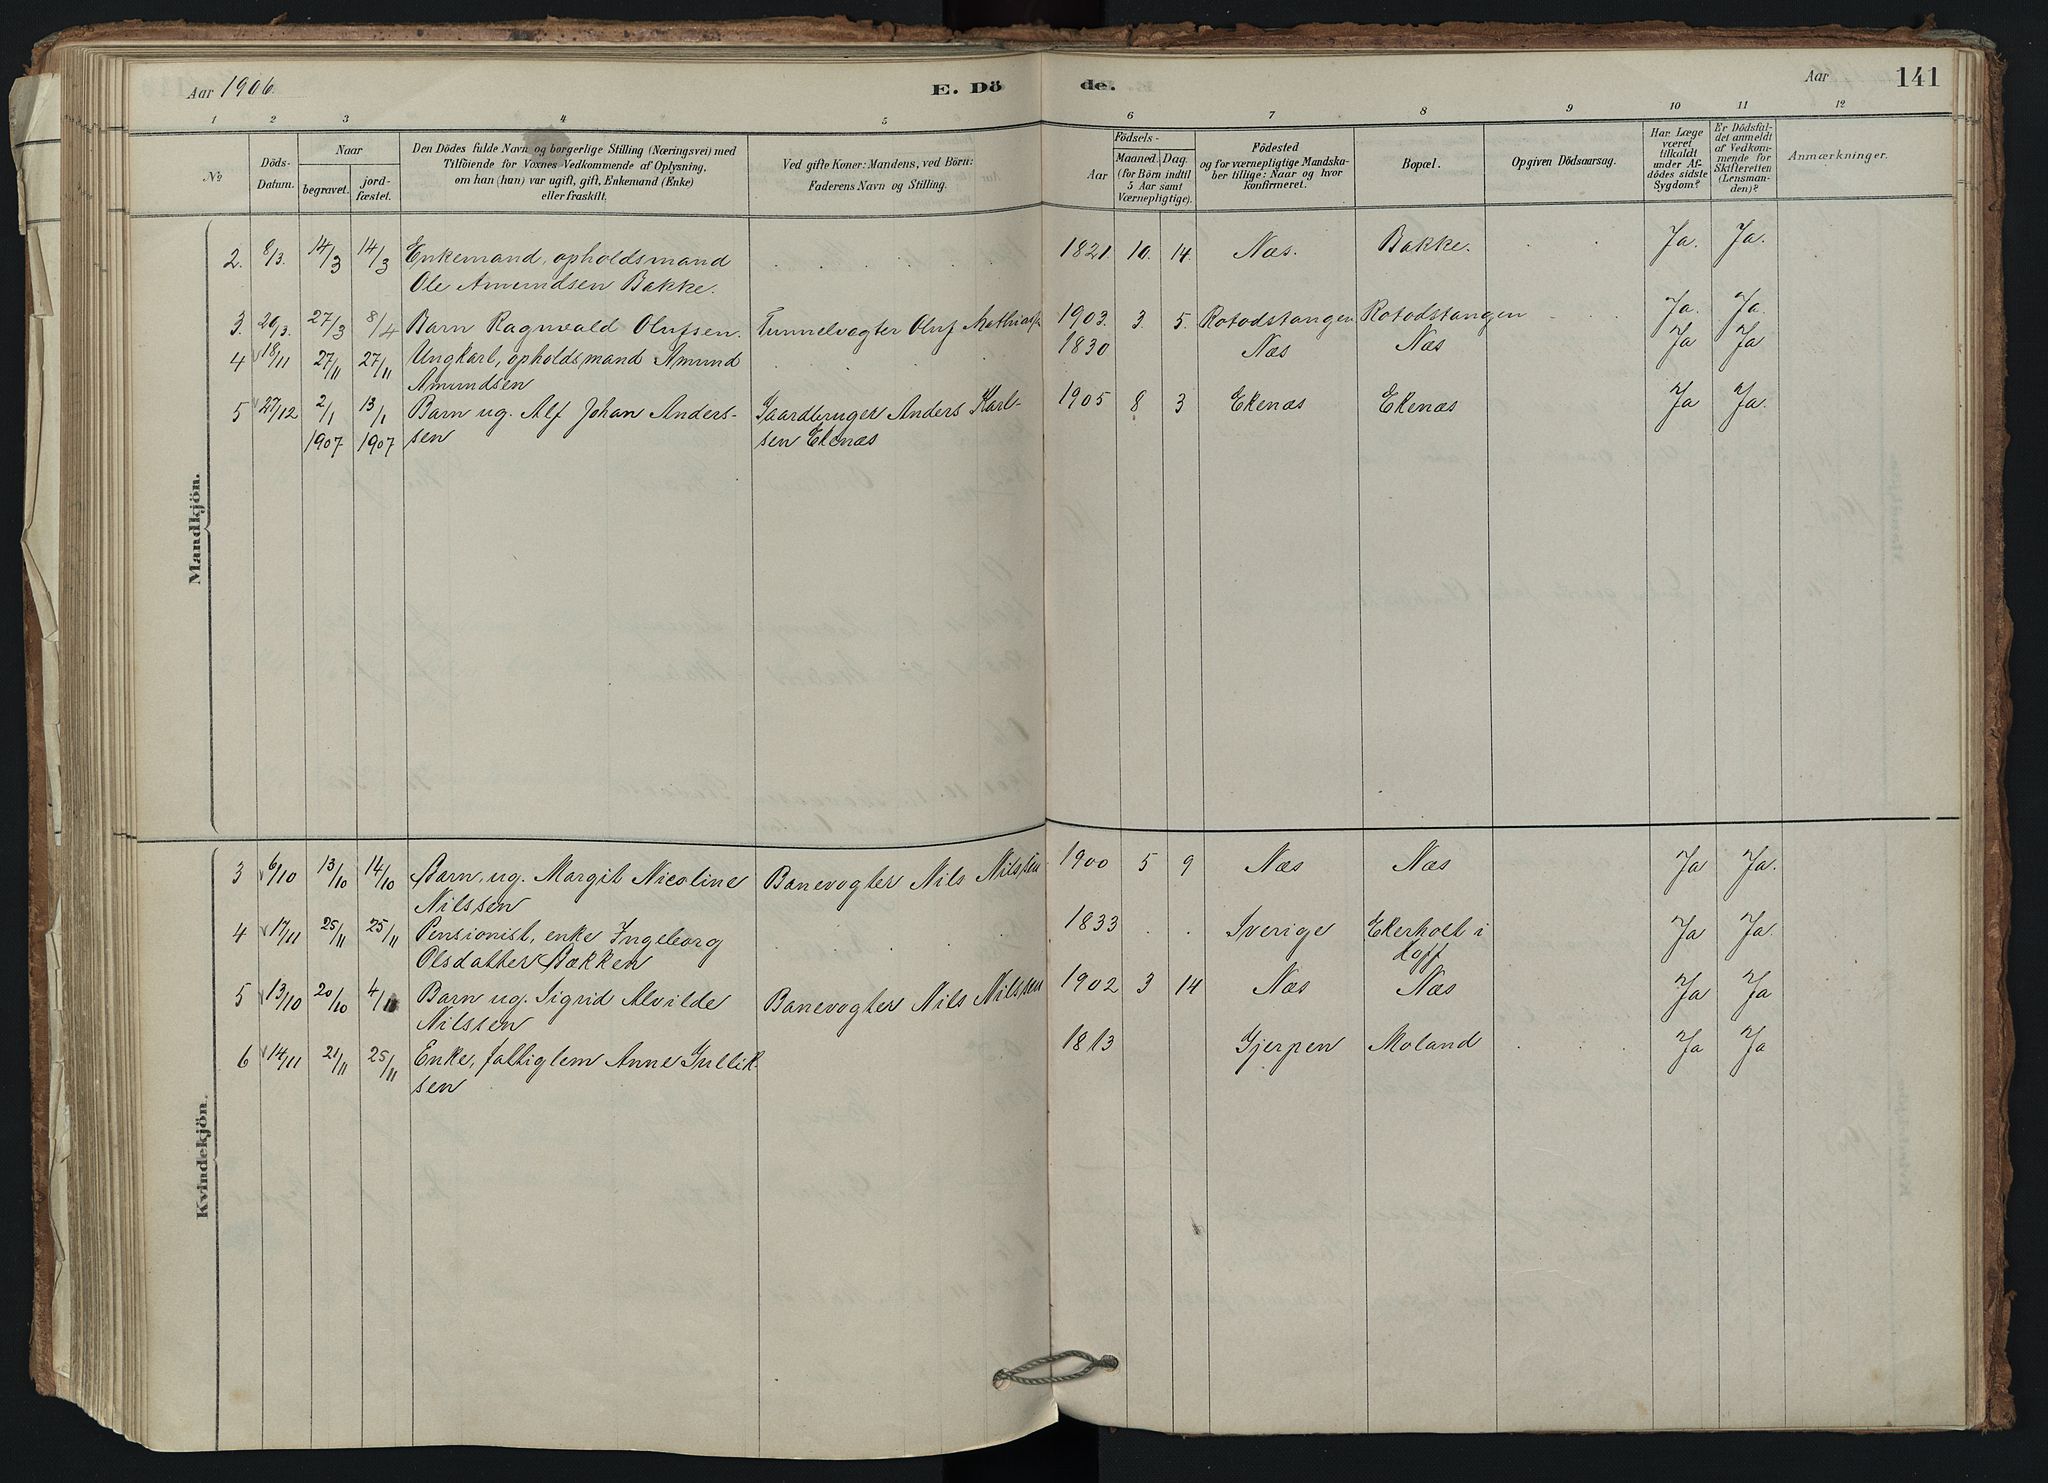 Aar 1906.
E. Döde.
Aar
141
1 2 3 4 5 6 7 8 9 10 11 12
No
Döds-Datum.
Naar
begravet.
jordfæstet.
Den Dödes fulde Navn og borgerlige Stilling (Næringsvei) med
Tilföiende for Voxnes Vedkommende af Oplysning,
om han (hun) var ugift, gift, Enkemand (Enke)
eller fraskilt.
Ved gifte Koner: Mandens, ved Börn:
Faderens Navn og Stilling.
Födsels-
Aar
Maaned. Dag.
(for Börn indtil
5 Aar samt
Værnepligtige).
Födested
og for værnepligtige Mandska-
ber tillige: Naar og hvor
konfirmeret.
Bopæl.
Opgiven Dödsaarsag.
Har Læge
været
tilkaldt
under Af-
dödes sidste
Sygdom?
Er Dödsfal-
det anmeldt
af Vedkom-
mende for
Skifteretten
(Lensman-
den)?
Anmærkninger.
Mandkjön.
2. 8/3. 14/3 14/3 Enkemand, opholdsmand . . . . . 1821. 10. 14. Næs. Bakke. . . . Ja. Ja.
Ole Amundsen Bakke.
3. 20/3. 27/3 8/4 Barn Ragnvald Olufsen. Tunnelvogter Oluf Mathias 1903. 3. 5. Rotodstangen Rotodstangen . . . Ja. Ja.
4 18/11 27/11 27/11 Ungkarl, opholdsmand Amund . . . . . 1830 Næs Næs Ja Ja
Amundsen
5 27/12 2/1 13/1 Barn ug. Alf Johan Anders- Gaardbruger Anders Karl- 1905 8 3 Ekenæs Ekenæs Ja Ja.
1907 1907 sen sen Ekenæs
Kvindekjön.
3 6/10 13/10 14/10 Barn, ug. Margit Nicoline Banevogter Nils Nilssen 1900 5 9 Næs Næs Ja Ja.
Nilssen
4 17/11 25/11 25/11 Pensionist, enke Ingeborg . . . . 1833 . . Sverige Ekerholt i Ja Ja.
Olsdatter Bækken Hoff
5 13/10 20/10 4/11 Barn ug. Sigrid Alvilde Banevogter Nils Nilssen 1902 3 14 Næs Næs Ja Ja
Nilssen
6 14/11 21/11 25/11 Enke, fattiglem Anne Gullik- 1813 Gjerpen Moland . . . Ja Ja
sen